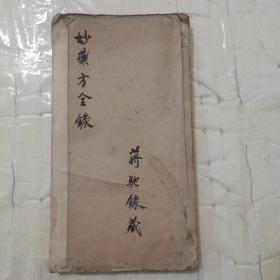 妙藥方全錄
蔣馳錄藏